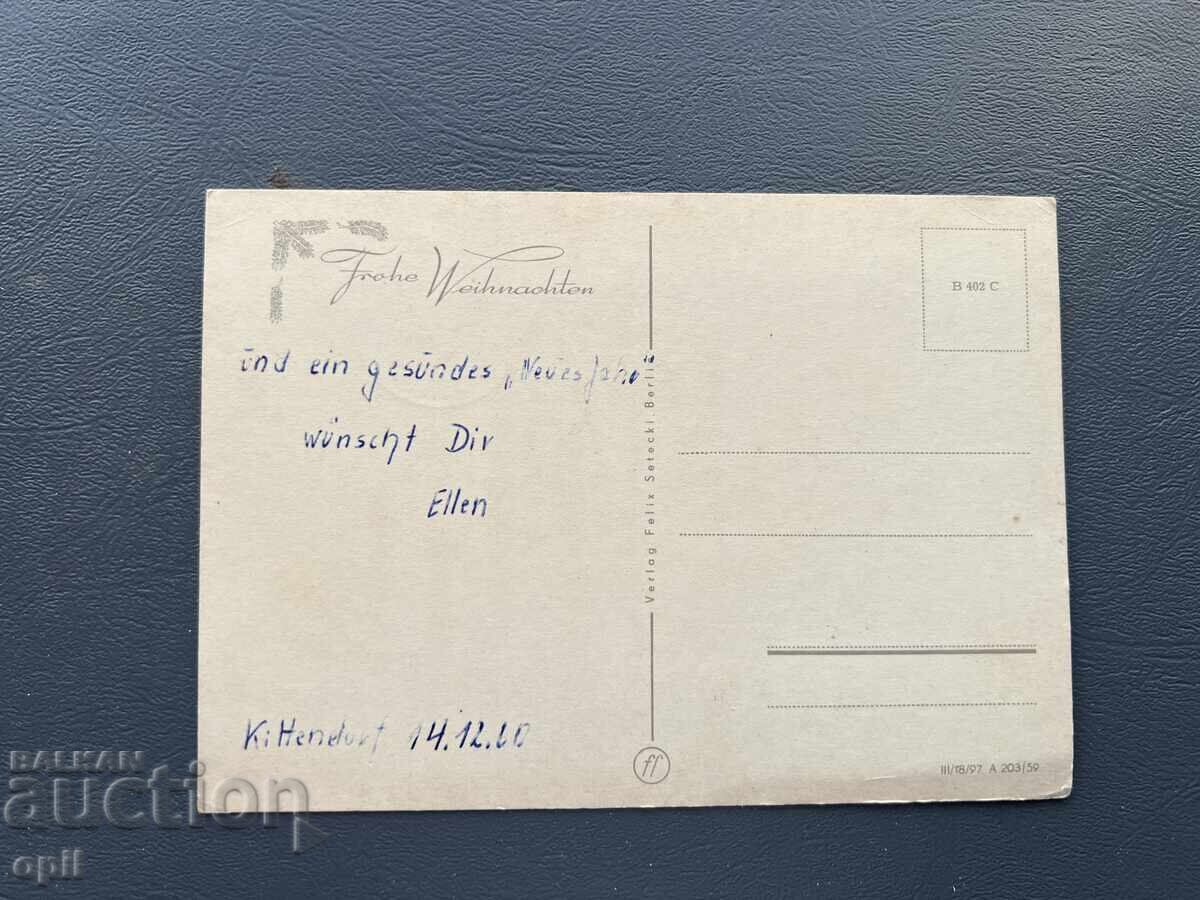 Frohe Weihnachten
und ein gesundes „Neues Jahr"
wünscht Dir
Ellen
Kittendorf 14.12.60
Verlag Felix Setecki, Berlin
ff
B 402 C
III/18/97 A 203/59
BALKAN
auction
opll